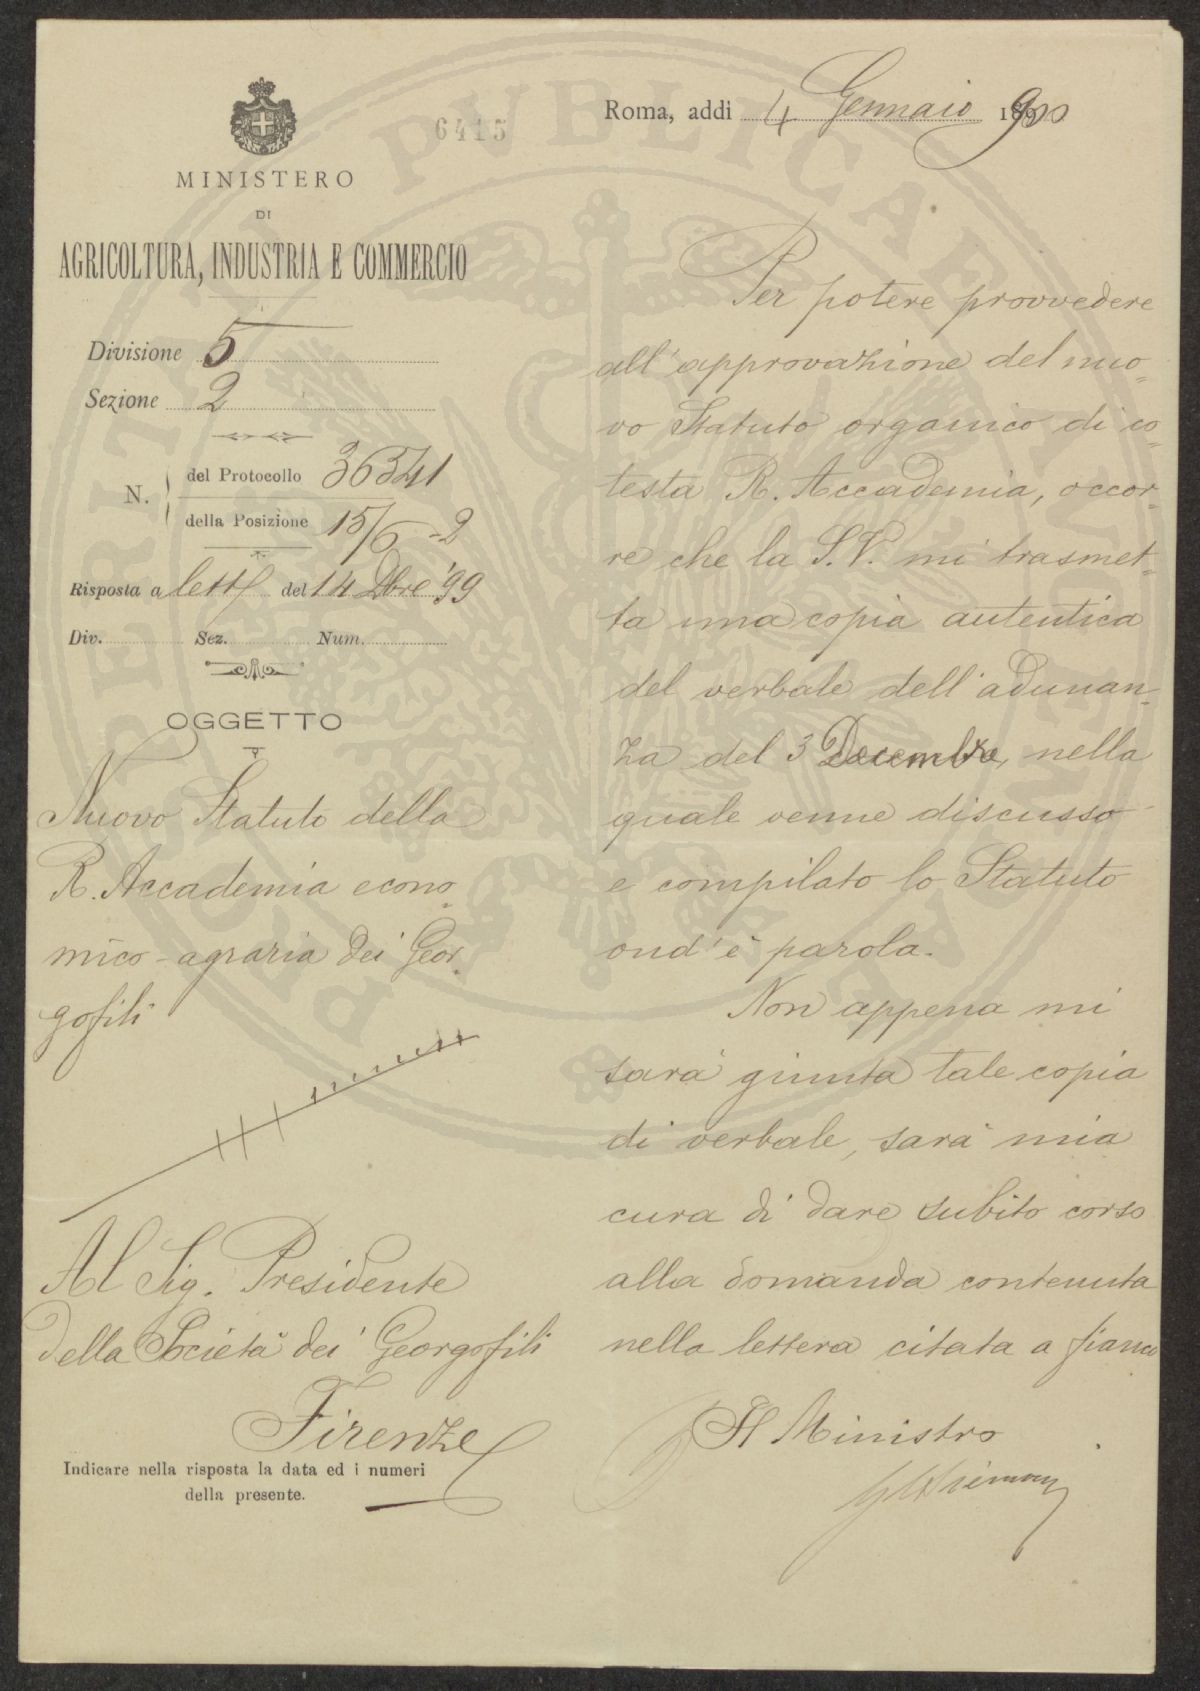 6415
Roma, addì 4 Gennaio 1900
MINISTERO
DI
AGRICOLTURA, INDUSTRIA E COMMERCIO
Divisione 5
Sezione 2
N. del Protocollo 36541
della Posizione 15/6-2
Risposta a lett del 14 Dbre '99
Div. Sez. Num.
OGGETTO
Nuovo Statuto della
R. Accademia econo-
mico-agraria dei Geor-
gofili
Al Sig. Presidente
della Società dei Georgofili
Firenze
Indicare nella risposta la data ed i numeri
della presente.
Per potere provvedere
all'approvazione del nuo-
vo Statuto organico di co-
testa R. Accademia, occor-
re che la S.V. mi trasmet-
ta una copia autentica
del verbale dell'adunan-
za del 3 Decembre, nella
quale venne discusso
e compilato lo Statuto
ond'è parola.
Non appena mi
sarà giunta tale copia
di verbale, sarà mia
cura di dare subito corso
alla domanda contenuta
nella lettera citata a fianco
Il Ministro